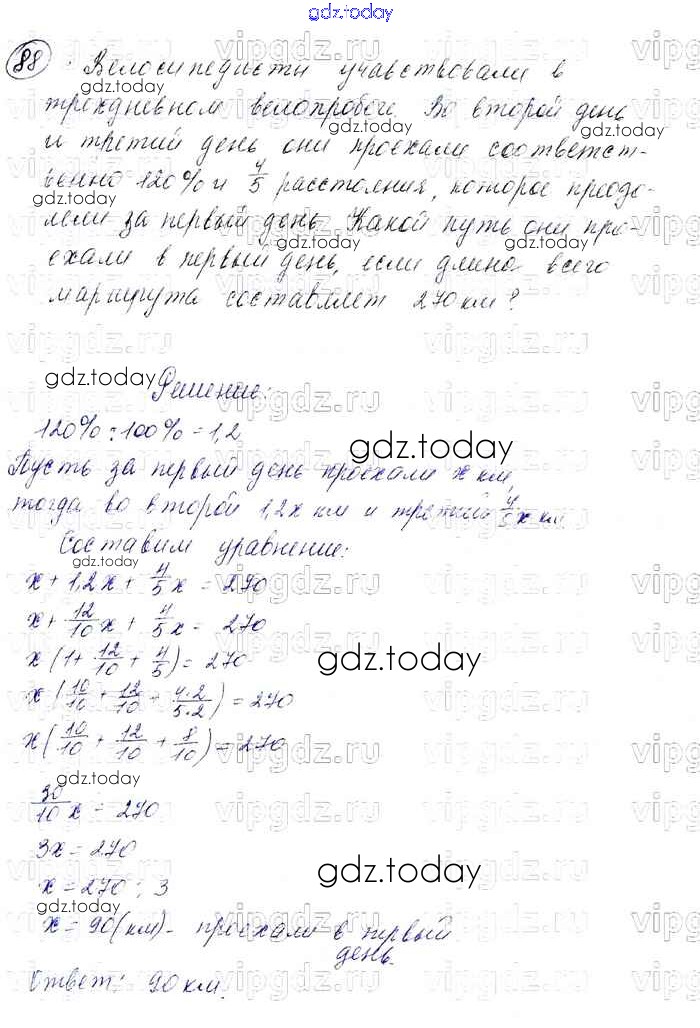 gdz.today
88 . Велосипедисти учавствовали в
трехдневном велопробеге. Во второй день
и третий день они проехали соответст-
венно 120% и 4/5 расстояния, которое преодо-
лели за первый день. Какой путь они про-
ехали в первый день, если длина всего
маршрута составляет 270 км?
Решение:
120% : 100% = 1,2
Пусть за первый день проехали x км,
тогда во второй 1,2x км и третий 4/5 x км
Составим уравнение:
x + 1,2x + 4/5 x = 270
x + 12/10 x + 4/5 x = 270
x (1 + 12/10 + 4/5) = 270
x (10/10 + 12/10 + 4·2/5·2) = 270
x (10/10 + 12/10 + 8/10) = 270
30/10 x = 270
3x = 270
x = 270 : 3
x = 90 (км) - проехали в первый
день.
Ответ: 90 км.